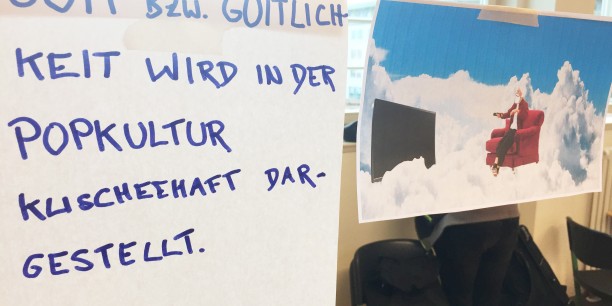 GOTT BZW. GÖTTLICH-
KEIT WIRD IN DER
POPKULTUR
KLISCHEEHAFT DAR-
GESTELLT.